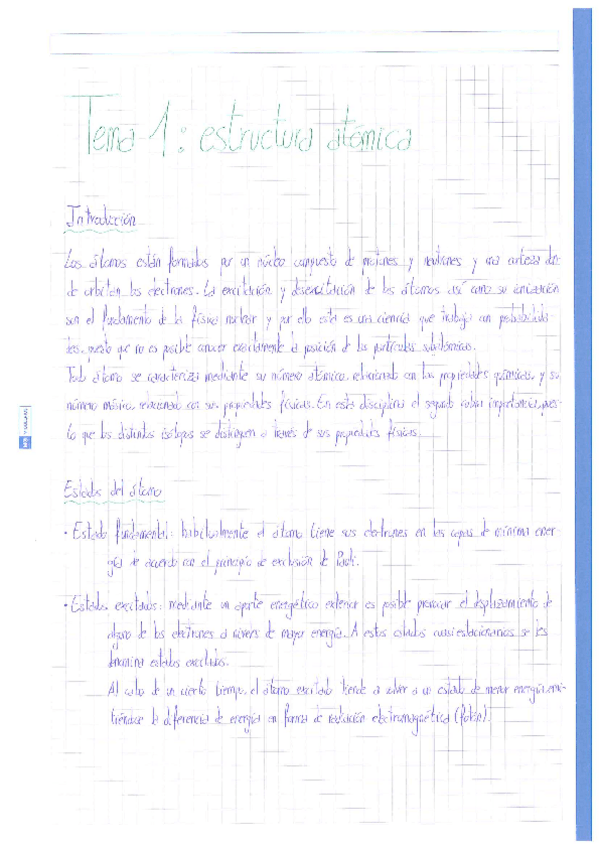 Tema 1: estructura atómica
Introducción
Los átomos están formados por un núcleo compuesto de protones y neutrones y una corteza don-
de orbitan los electrones. La excitación y desexcitación de los átomos así como su ionización
son el fundamento de la física nuclear y por ello esta es una ciencia que trabaja con probabilida-
des, puesto que no es posible conocer exactamente la posición de las partículas subatómicas.
Todo átomo se caracteriza mediante su número atómico, relacionado con las propiedades químicas, y su
número másico, relacionado con sus propiedades físicas. En esta disciplina el segundo cobra importancia, pues-
to que los distintos isótopos se distinguen a través de sus propiedades físicas.
Estados del átomo
· Estado fundamental: habitualmente el átomo tiene sus electrones en las capas de mínima ener-
gía de acuerdo con el principio de exclusión de Pauli.
· Estados excitados: mediante un aporte energético exterior es posible provocar el desplazamiento de
alguno de los electrones a niveles de mayor energía. A estos estados cuasiestacionarios se les
denomina estados excitados.
Al cabo de un cierto tiempo, el átomo excitado tiende a volver a un estado de menor energía, emi-
tiéndose la diferencia de energía en forma de radiación electromagnética (fotón).